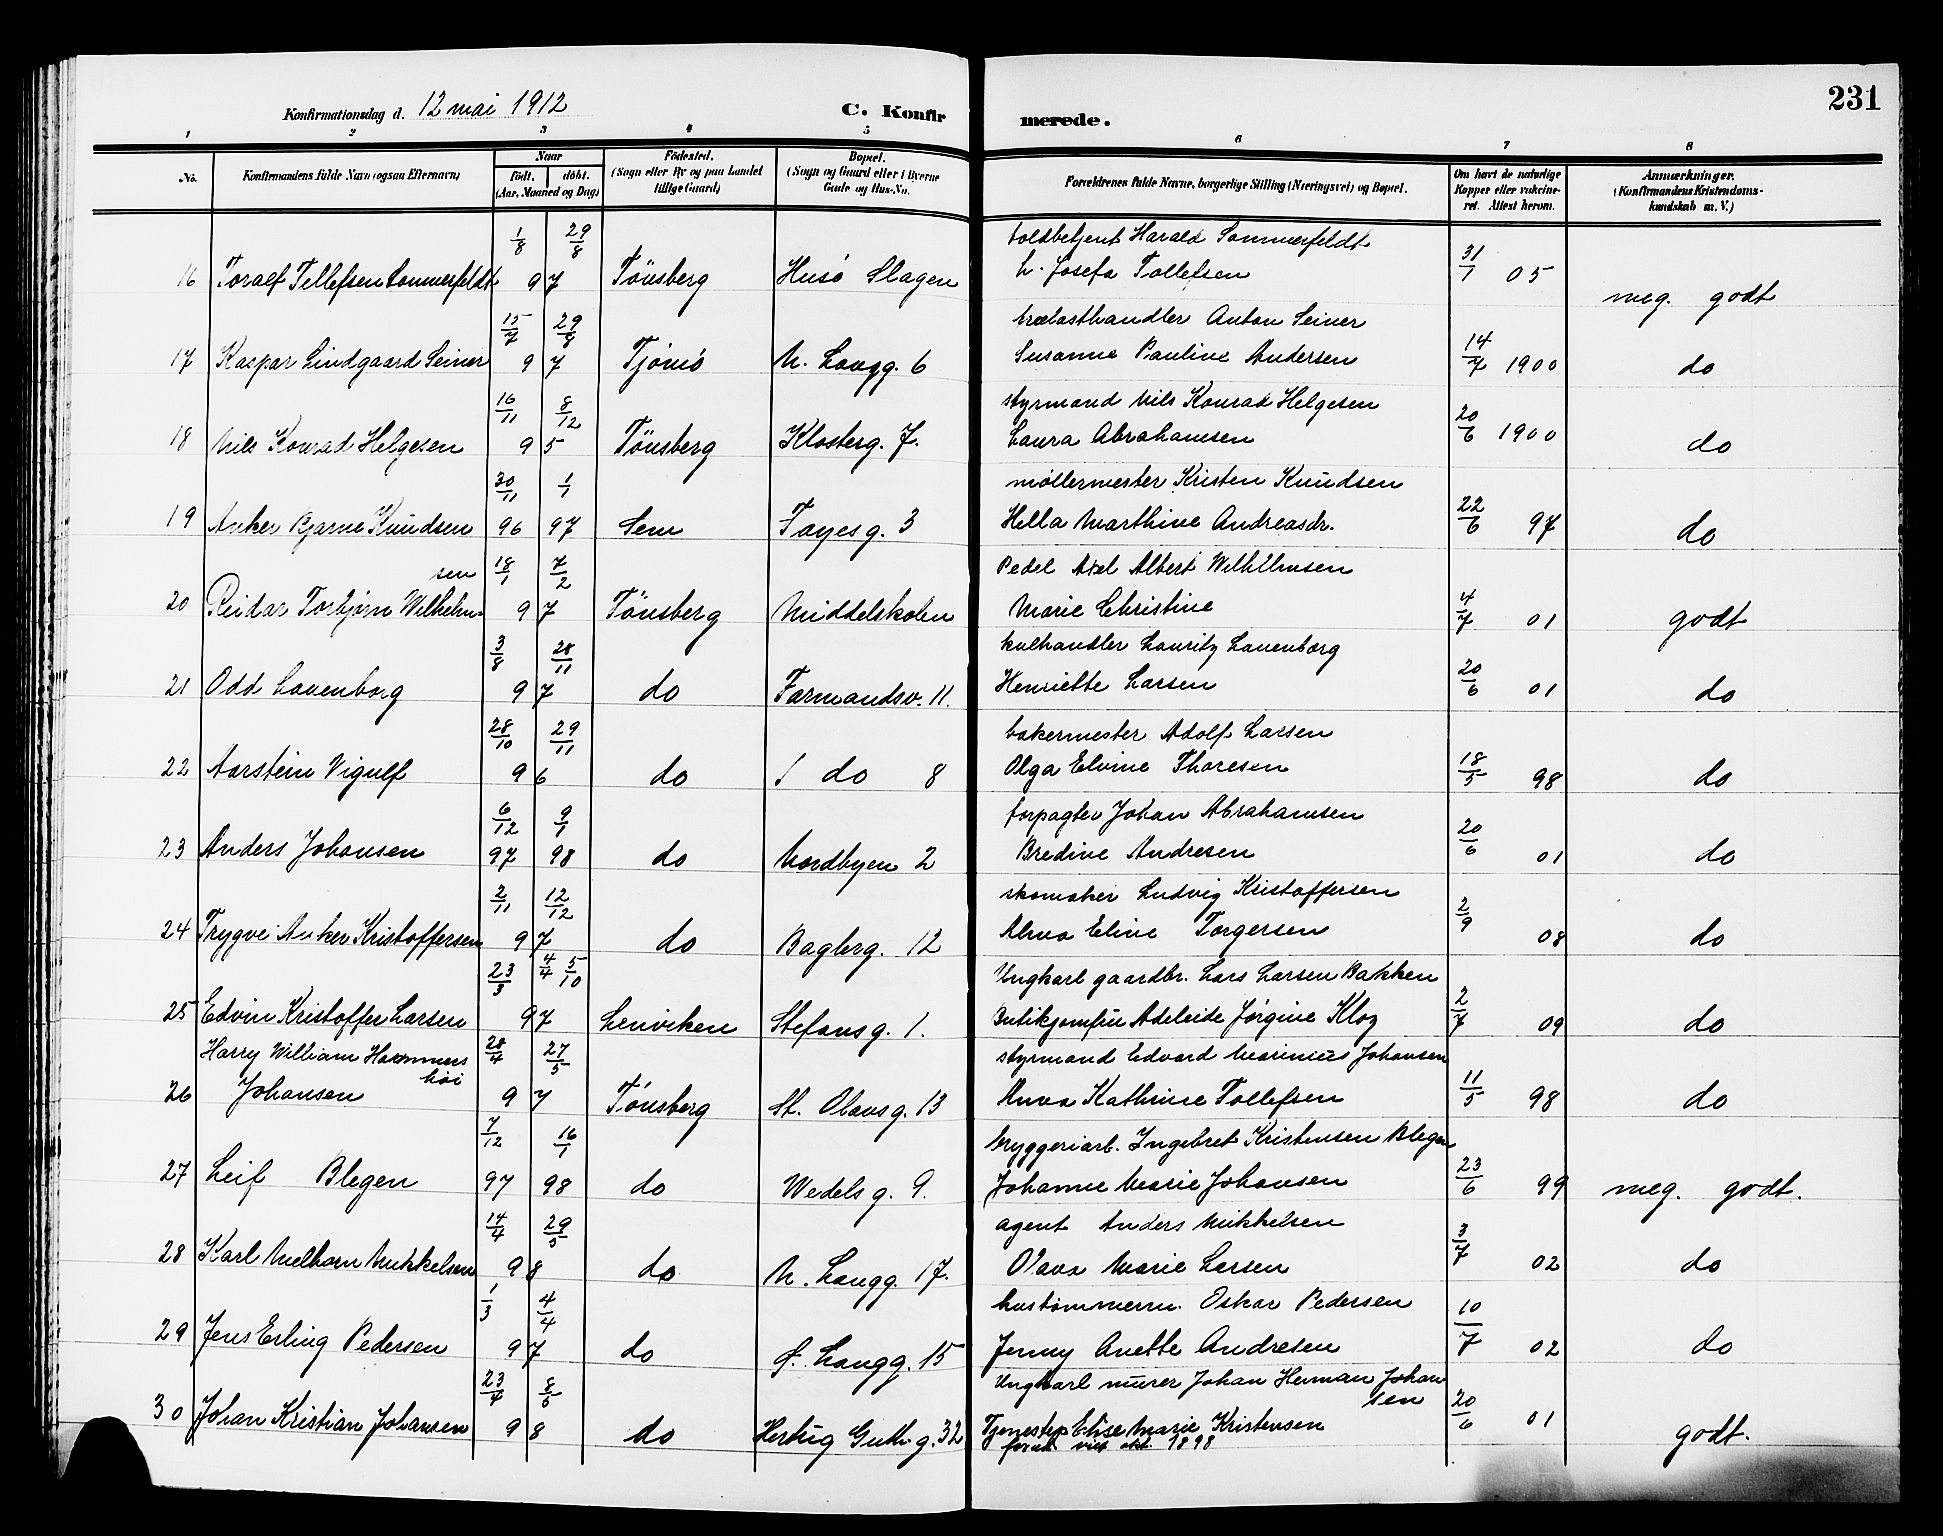 231
Konfirmationsdag d. 12 mai 1912 C. Konfirmerede.
1 2 3 4 5 6 7 8
No. Konfirmandens fulde Navn (ogsaa Efternavn) Naar födt. döbt. (Aar, Maaned og Dag) Födested. (Sogn eller By og paa Landet tillige Gaard) Bopæl. (Sogn og Gaard eller i Byerne Gade og Hus-No. Forældrenes fulde Navne, borgerlige Stilling (Næringsvei) og Bopæl. Om havt de naturlige Kopper eller vakcineret. Attest herom. Anmærkninger. (Konfirmandens Kristendomskundskab m. V.)
1/8 29/8 toldbetjent Harald Sommerfeldt
16 Toralf Tellefsen Sommerfeldt 97 Tönsberg Husö Slagen h. Josefa Tollefsen 31/1 05 meg. godt
15/7 29/8 trælasthandler Anton Seiner
17 Kaspar Lindgaard Seiner 97 Tjömö N. Langg. 6 Susanne Pauline Andersen 14/7 1900 do
16/11 8/12 styrmand Nils Konrad Helgesen
18 Nils Konrad Helgesen 95 Tönsberg Klosterg. 7. Laura Abrahamsen 20/6 1900 do
30/11 1/1 möllermester Kristen Knudsen
19 Anker Bjarne Knudsen 96 97 Sem Fayesg. 3 Hella Marthine Andreasdr. 22/6 97 do
sen 18/1 7/2 Pedel Axel Albert Wilhelmsen
20 Reidar Torbjörn Wilhelm 97 Tönsberg Middelskolen Marie Christine 4/7 01 godt
3/8 28/11 kulhandler Lauritz Lauenborg
21 Odd Lauenborg 97 do Farmandsv. 11. Henriette Larsen 20/6 01 do
28/10 29/11 bakermester Adolf Larsen
22 Aarstein Vigulf 96 do do 8 Olga Elvine Thoresen 18/5 98 do
6/12 9/1 forpagter Johan Abrahamsen
23 Anders Johansen 97 98 do Nordbyen 2 Bredine Andresen 20/6 01 do
2/11 12/12 skomaker Ludvig Kristoffersen
24 Trygve Anker Kristoffersen 97 do Baglerg. 12 Alma Eline Torgersen 2/9 08 do
23/3 4/4 5/10 Ungkarl gaardbr. Lars Larsen Bakken
25 Edvin Kristoffer Larsen 97 Lenviken Stefansg. 1. Butikjomfru Adeleide Jörgine Klog 2/7 09 do
Harry William Hammershöi 28/4 27/5 styrmand Edvard Marinius Johansen
26 Johansen 97 Tönsberg St. Olavsg. 13 Anna Kathrine Tollefsen 11/5 98 do
7/12 16/1 bryggeriarb. Ingebret Kristensen Blegen
27 Leif Blegen 97 98 do Wedelsg. 9. Johanne Marie Johansen 23/6 99 meg. godt.
14/4 29/5 agent Anders Mikkelsen
28 Karl Melhorn Mikkelsen 98 do N. Langg. 17. Olava Marie Larsen 3/7 02 do
1/3 4/4 hustömmerm. Oskar Pedersen
29 Jens Erling Pedersen 97 do Ö. Langg. 15 Jenny Anette Andresen 10/7 02 do
23/4 8/5 Ungkarl murer Johan Herman Johansen
30 Johan Kristian Johansen 98 do Hertug Guth. g. 32 Tjenestep. Elise Marie Kristensen 20/6 01 godt.
1898